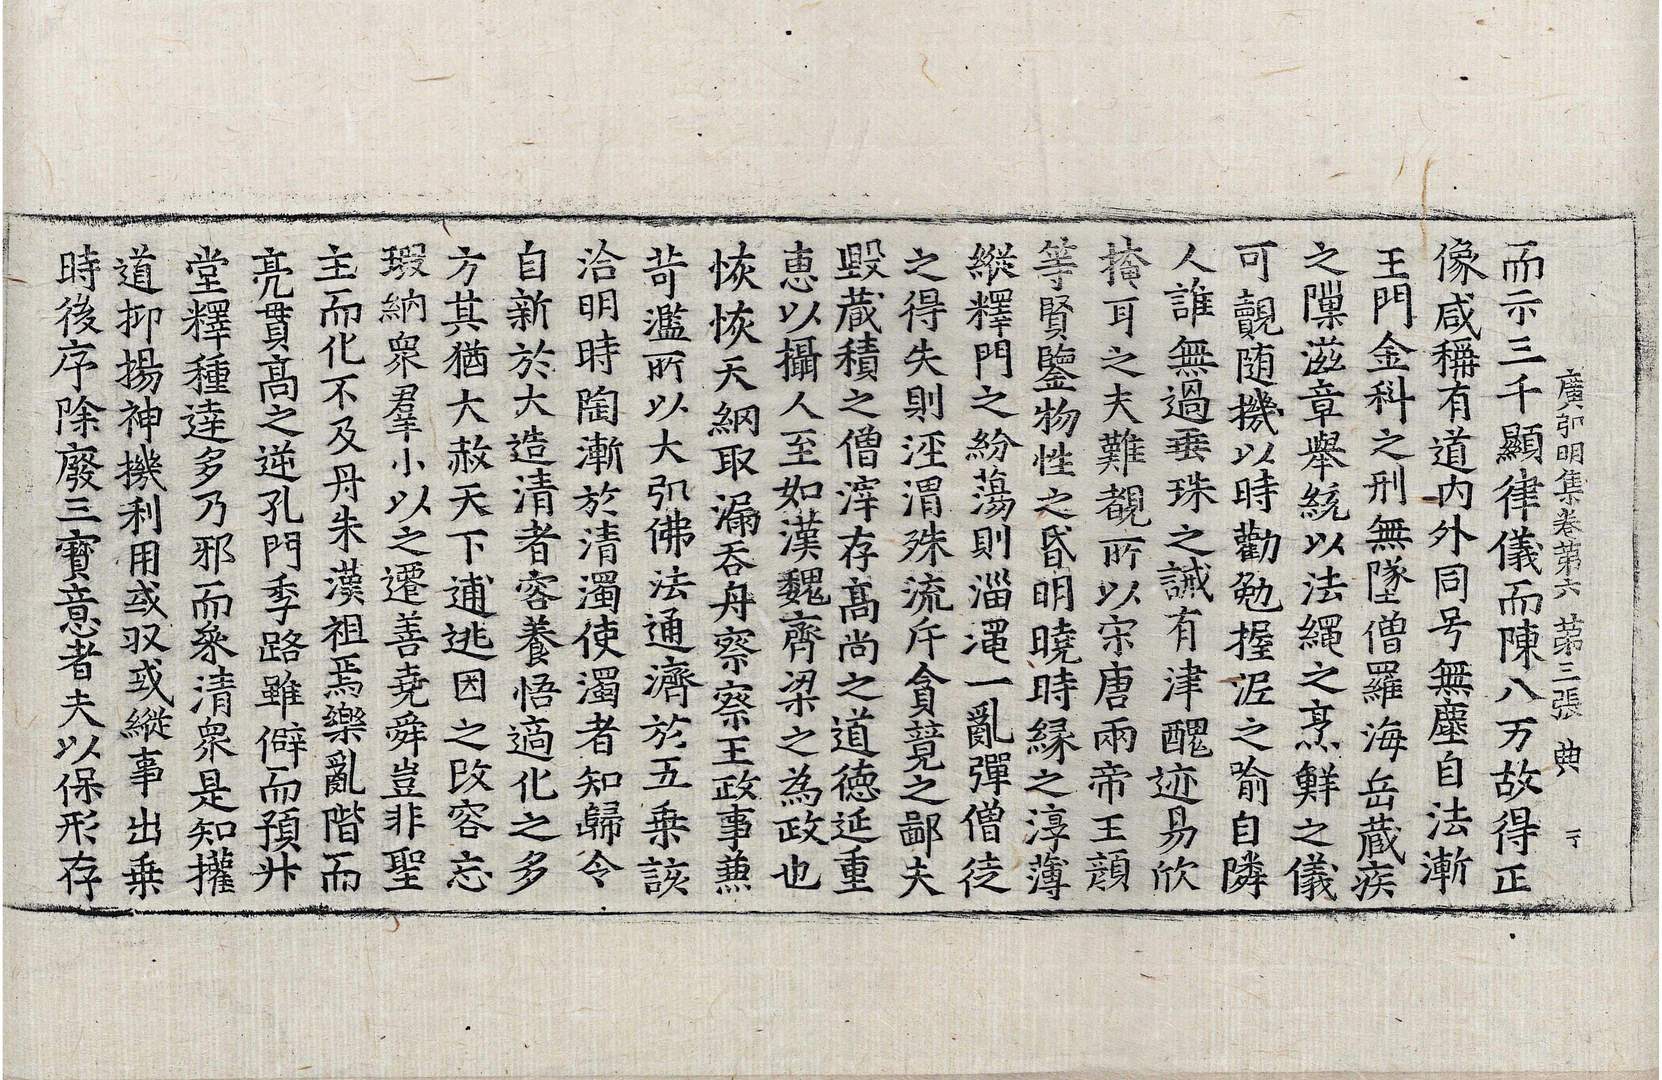 廣弘明集卷第六　第三張　典
而示三千顯律儀而陳八万故得正
像咸稱有道內外同号無塵自法漸
王門金科之刑無墜僧羅海岳蔵疾
之𨻶滋章舉統以法繩之烹鮮之儀
可覿随機以時勸勉握泥之喻自隣
人誰無過垂珠之誡有津醜迹易欣
掩耳之夫難覩所以宋唐兩帝王顔
等賢鑒物性之昏明曉時縁之淳薄
縱釋門之紛蕩則淄澠一亂彈僧徒
之得失則涇渭殊流斥貪競之鄙夫
毀蔵積之僧滓存高尚之道德延重
恵以攝人至如漢魏齊梁之為政也
恢恢天網取漏吞舟察察王政事𠔥
苛濫所以大弘佛法通濟於五乗該
洽明時陶漸於清濁使濁者知歸令
自新於大造清者容養悟適化之多
方其猶大赦天下逋逃因之改容忘
瑕納衆羣小以之遷善堯舜豈非聖
主而化不及丹朱漢祖焉樂亂階而
亮貫高之逆孔門季路雖僻而預升
堂釋種達多乃邪而叅清衆是知權
道抑揚神機利用或収或縱事出乗
時後序除廢三寳意者夫以保形存